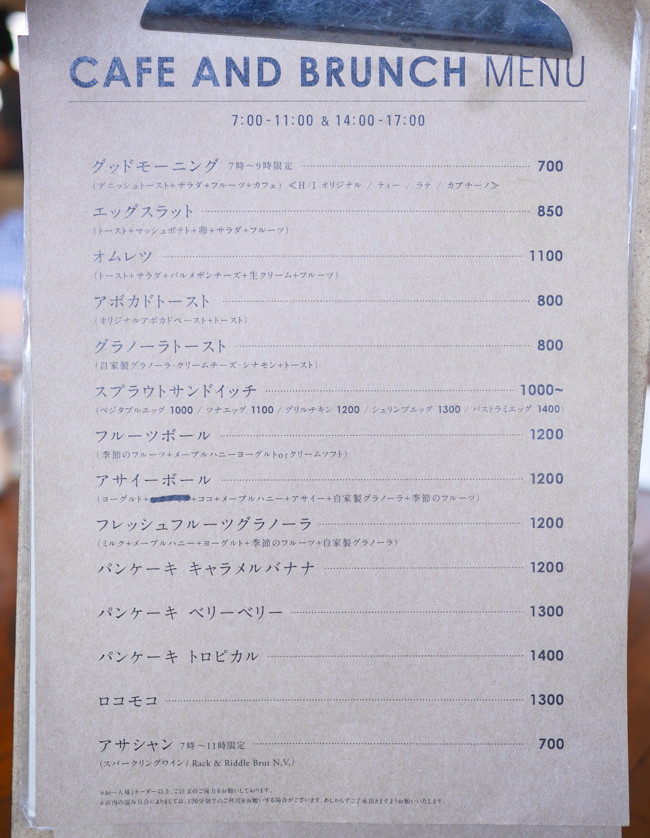 CAFE AND BRUNCH MENU
7:00-11:00 & 14:00-17:00
グッドモーニング 7時～9時限定 700
(デニッシュトースト+サラダ+フルーツ+カフェ) ≪H/I オリジナル / ティー / ラテ / カプチーノ≫
エッグスラット 850
(トースト+マッシュポテト+卵+サラダ+フルーツ)
オムレツ 1100
(トースト+サラダ+パルメザンチーズ+生クリーム+フルーツ)
アボカドトースト 800
(オリジナルアボカドペースト+トースト)
グラノーラトースト 800
(自家製グラノーラ・クリームチーズ・シナモン+トースト)
スプラウトサンドイッチ 1000~
(ベジタブルエッグ 1000 / ツナエッグ 1100 / グリルチキン 1200 / シュリンプエッグ 1300 / パストラミエッグ 1400)
フルーツボール 1200
(季節のフルーツ+メープルハニーヨーグルトorクリームソフト)
アサイーボール 1200
(ヨーグルト+ +ココ+メープルハニー+アサイー+自家製グラノーラ+季節のフルーツ)
フレッシュフルーツグラノーラ 1200
(ミルク+メープルハニー+ヨーグルト+季節のフルーツ+自家製グラノーラ)
パンケーキ キャラメルバナナ 1200
パンケーキ ベリーベリー 1300
パンケーキ トロピカル 1400
ロコモコ 1300
アサシャン 7時～11時限定 700
(スパークリングワイン/ Rack & Riddle Brut N.V.)
※お一人様1オーダー以上、ご注文のご協力をお願いしております。
※店内の混み具合によりましては、120分制でのご利用をお願いする場合がございます。あしからずご了承頂きますようお願いいたします。